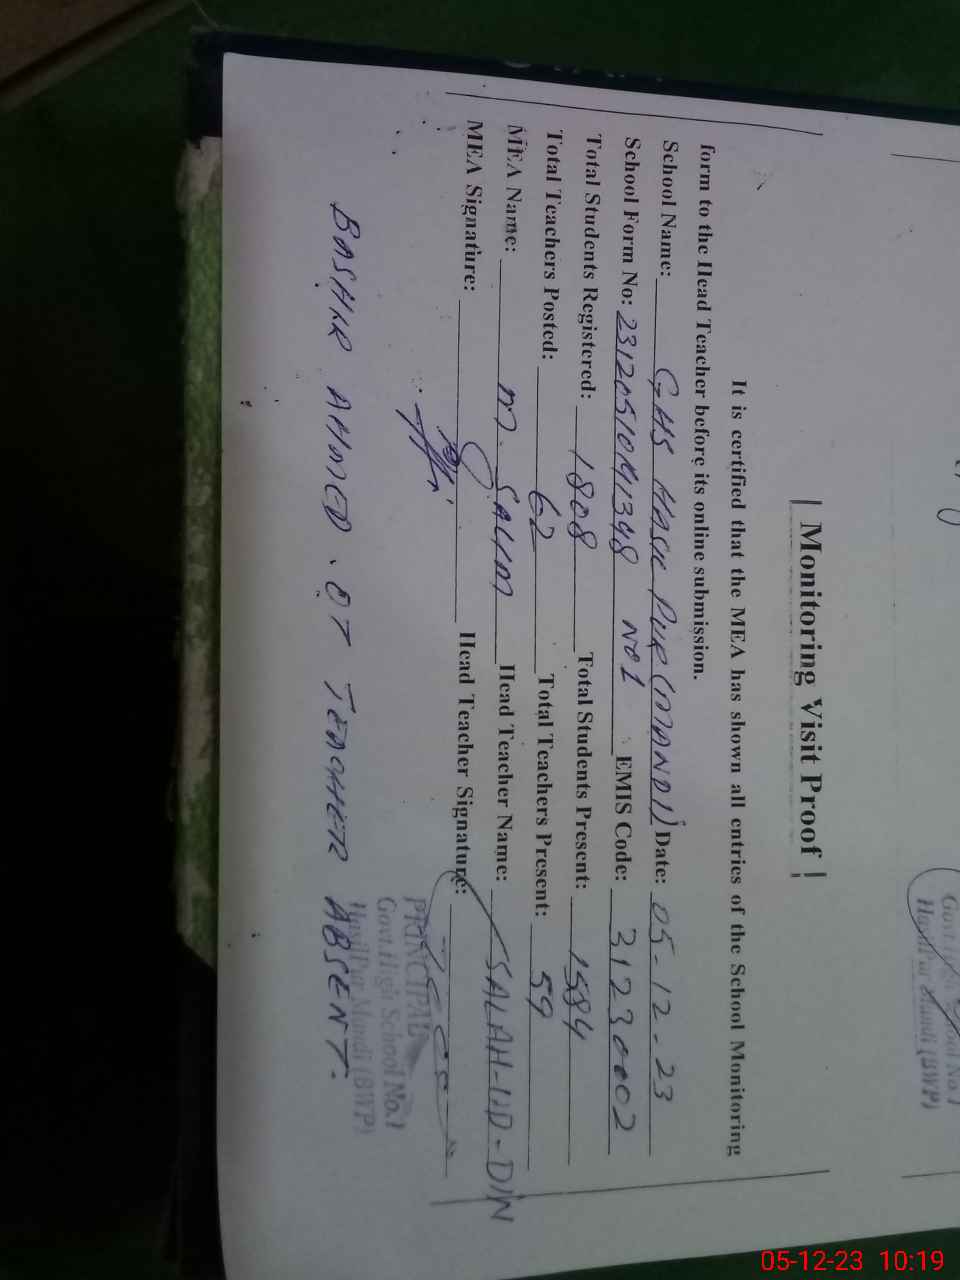 Monitoring Visit Proof
It is certified that the MEA has shown all entries of the School Monitoring
form to the Head Teacher before its online submission.
School Name: GHS HASIL PUR (MANDI) Date: 05-12-23
School Form No: NO1 EMIS Code: 31230002
Total Students Registered: 1808 Total Students Present: 1584
Total Teachers Posted: 62 Total Teachers Present: 59
MEA Name: M. SALIM Head Teacher Name: SALAH-UD-DIN
MEA Signature: Head Teacher Signature:
PRINCIPAL
Govt.High School No.1
HasilPur Mandi (BWP)
BASHIR AHMED. OT TEACHER ABSENT.
HasilPur Mandi (BWP)
05-12-23 10:19